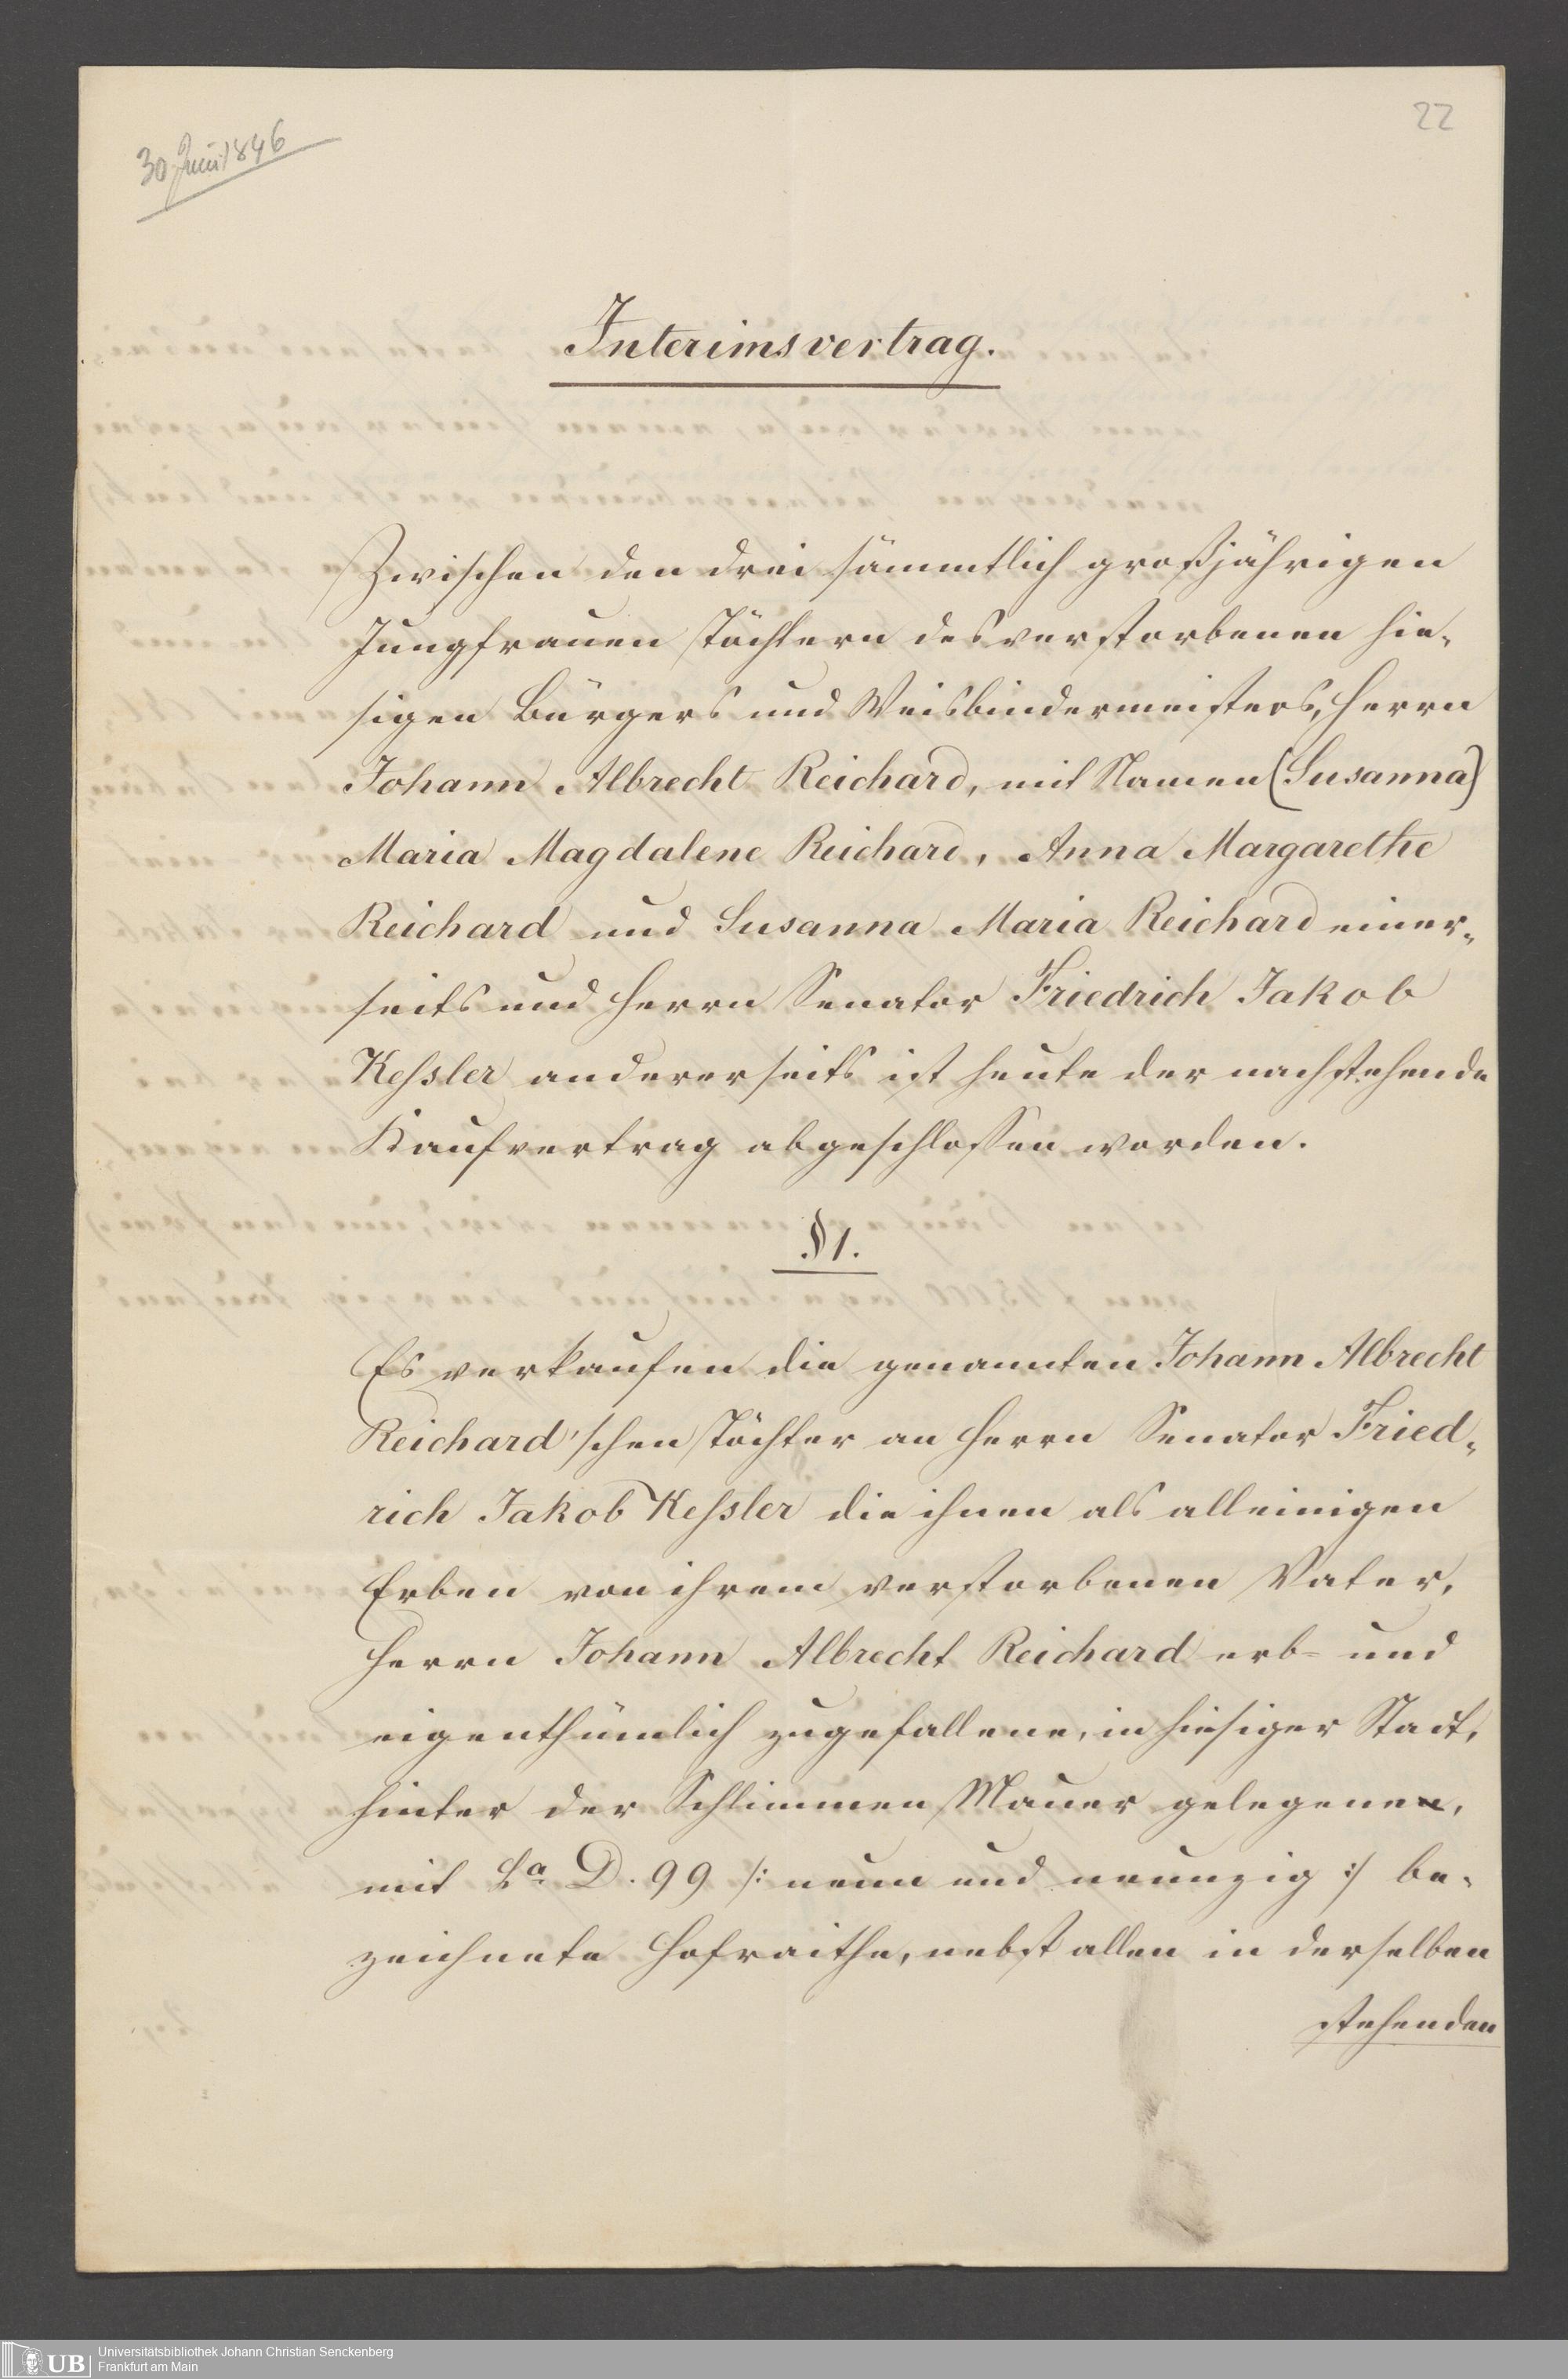 30 Juni 1846
22
Interimsvertrag.
Zwischen den drei sämmtlich großjährigen
Jungfrauen Töchtern des verstorbenen hie-
sigen Bürgers und Weisbindermeisters, Herrn
Johann Albrecht Reichard, mit Namen (Susanna)
Maria Magdalene Reichard, Anna Margarethe
Reichard und Susanna Maria Reichard einer-
seits und Herrn Senator Friedrich Jakob
Kessler andererseits ist heute der nachstehende
Kaufvertrag abgeschlossen worden.
§ 1.
Es verkaufen die genannten Johann Albrecht
Reichard'schen Töchter an Herrn Senator Fried-
rich Jakob Kessler die ihnen als alleinigen
Erben von ihrem verstorbenen Vater,
Herrn Johann Albrecht Reichard erb- und
eigenthümlich zugefallene, in hiesiger Stadt,
hinter der Schlimmen Mauer gelegene,
mit La. D. 99 /: neun und neunzig :/ be-
zeichnete Hofraithe, nebst allen in derselben
stehenden
UB
Universitätsbibliothek Johann Christian Senckenberg
Frankfurt am Main